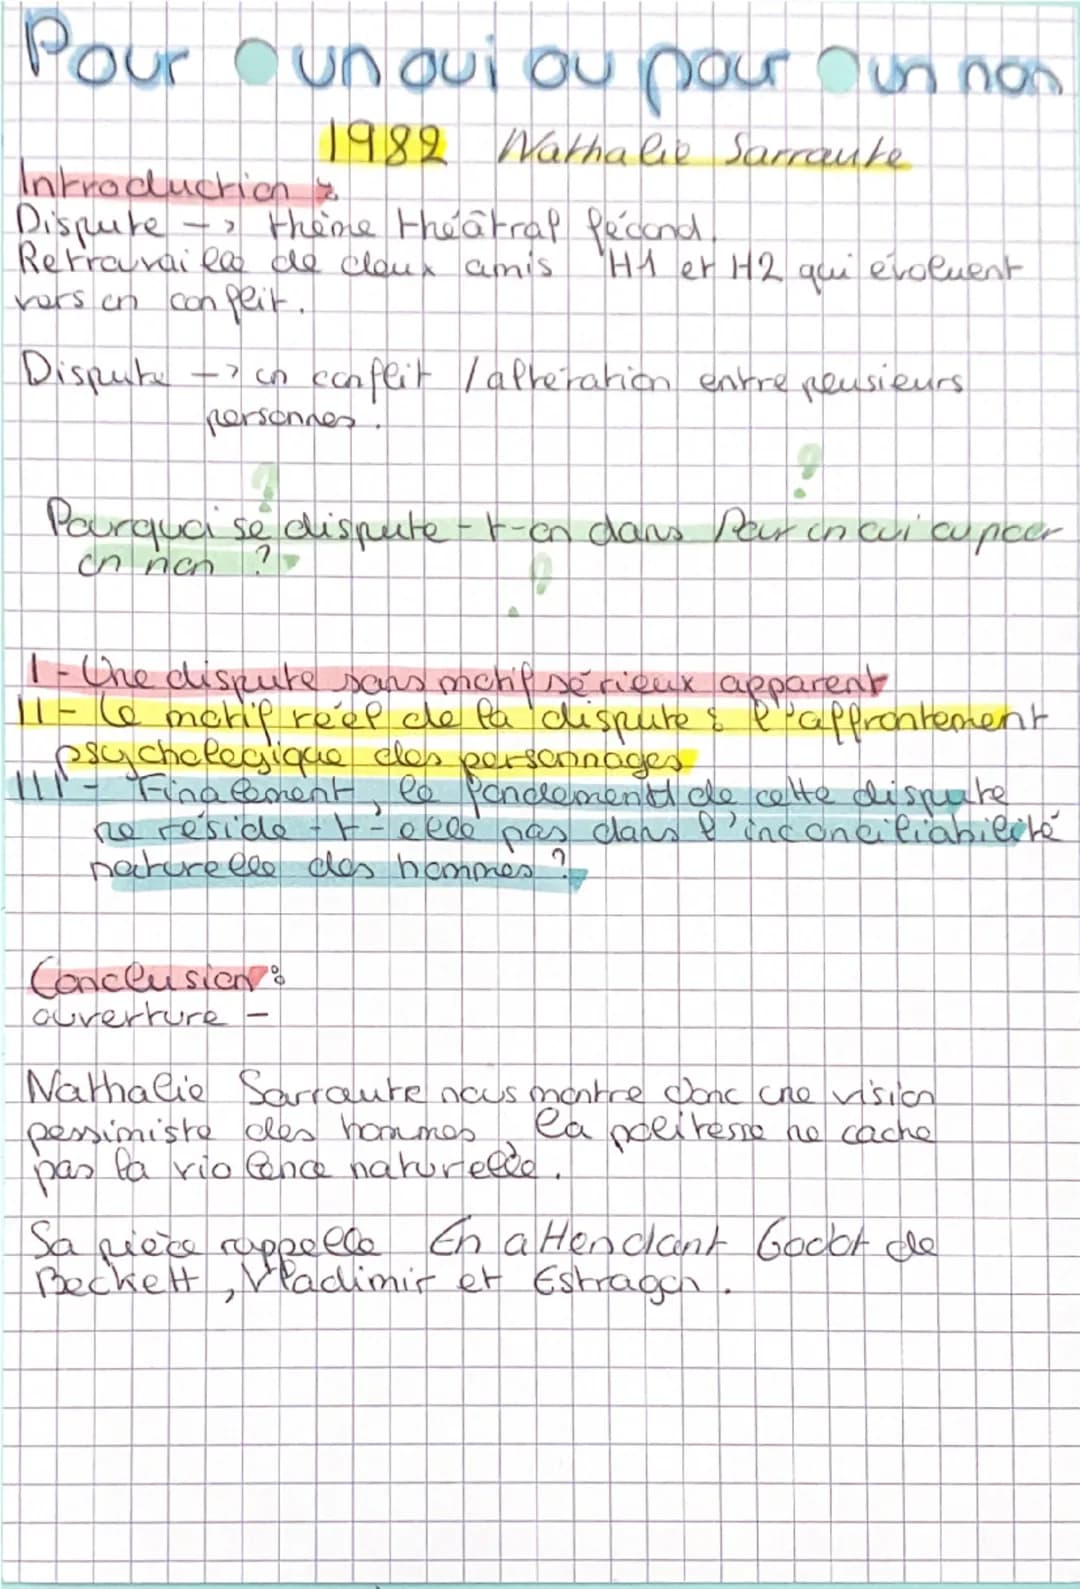 Pour un oui ou pour un non
1982 Nathalie Sarraute
Introduction :
Dispute -> thème théâtral fécond.
Retravaillé de deux amis H1 et H2 qui évoluent
vers un conflit.
Dispute -> un conflit / altération entre plusieurs
personnes.
Pourquoi se dispute-t-on dans Pour un oui ou pour
un non ?
I - Une dispute sans motif sérieux apparent
II - Le motif réel de la dispute : l'affrontement
psychologique des personnages
III - Finalement, le fondement de cette dispute
ne réside-t-elle pas dans l'inconciliabilité
naturelle des hommes ?
Conclusion :
ouverture -
Nathalie Sarraute nous montre donc une vision
pessimiste des hommes, la politesse ne cache
pas la violence naturelle.
Sa pièce rappelle En attendant Godot de
Beckett, Vladimir et Estragon.